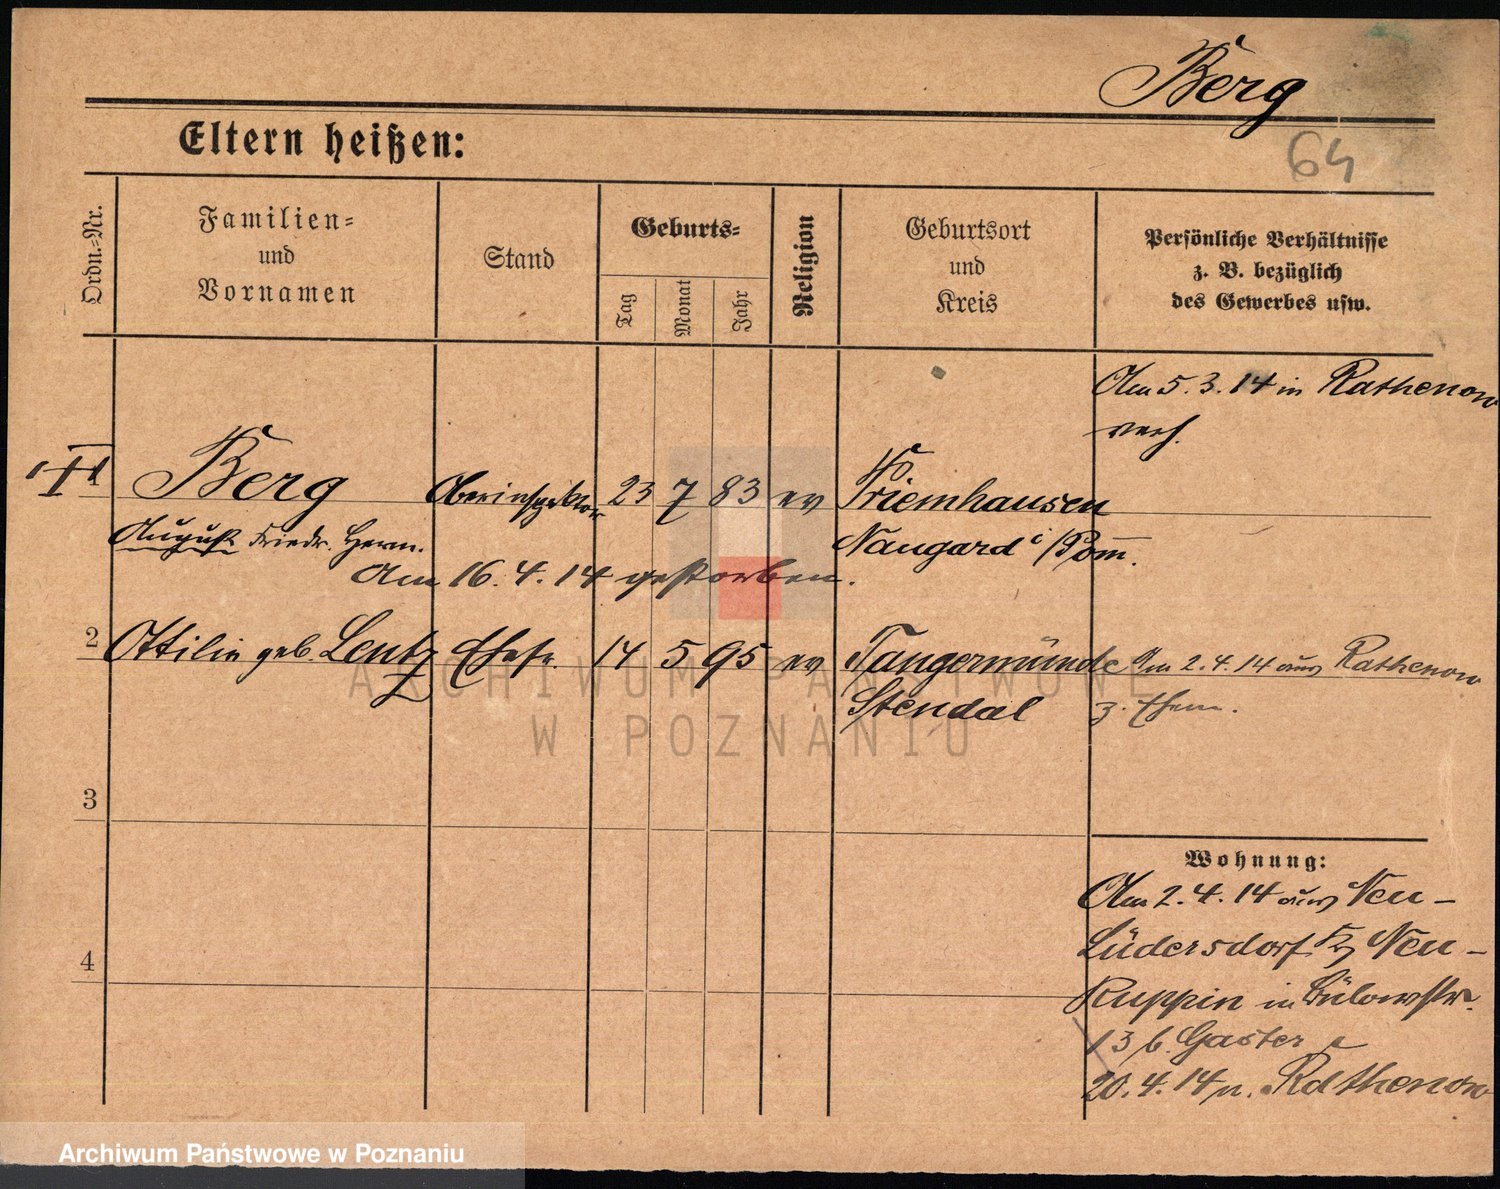 Berg
64
Eltern heißen:
Ordn.=Nr.
Familien=
und
Vornamen
Stand
Geburts=
Tag
Monat
Jahr
Religion
Geburtsort
und
Kreis
Persönliche Verhältnisse
z. B. bezüglich
des Gewerbes usw.
Am 5.3.14 in Rathenow
verh.
1 Berg Oberinspektor 23 7 83 ev Priemhausen
August Friedr. Herm. Naugard i/Pom.
Am 16.4.14 gestorben.
2 Ottilie geb. Lentz Ehefr. 14 5 95 ev Tangermünde Am 2.4.14 aus Rathenow
Stendal z. Ehem.
3
4
Wohnung:
Am 2.4.14 aus Neu-
Lüdersdorf Kr. Neu-
Ruppin in Bülowstr.
13 b. Gaster
20.4.14 n. Rathenow
ARCHIWUM PAŃSTWOWE
W POZNANIU
Archiwum Państwowe w Poznaniu